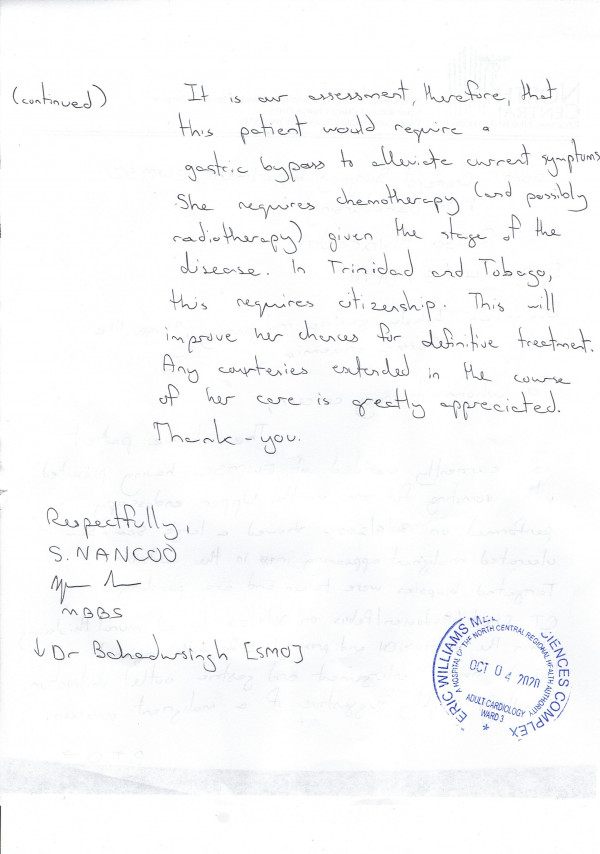 (continued) It is our assessment, therefore, that
this patient would require a
gastric bypass to alleviate current symptoms
She requires chemotherapy (and possibly
radiotherapy) given the stage of the
disease. In Trinidad and Tobago,
this requires citizenship. This will
improve her chances for definitive treatment.
Any courtesies extended in the course
of her care is greatly appreciated.
Thank-you.
Respectfully,
S. NANCOO
MBBS
↓ Dr Bahadursingh [SMO]
ERIC WILLIAMS SCIENCES COMPLEX
A HOSPITAL OF THE NORTH CENTRAL REGIONAL HEALTH AUTHORITY
OCT 04 2020
ADULT CARDIOLOGY
WARD 3
*